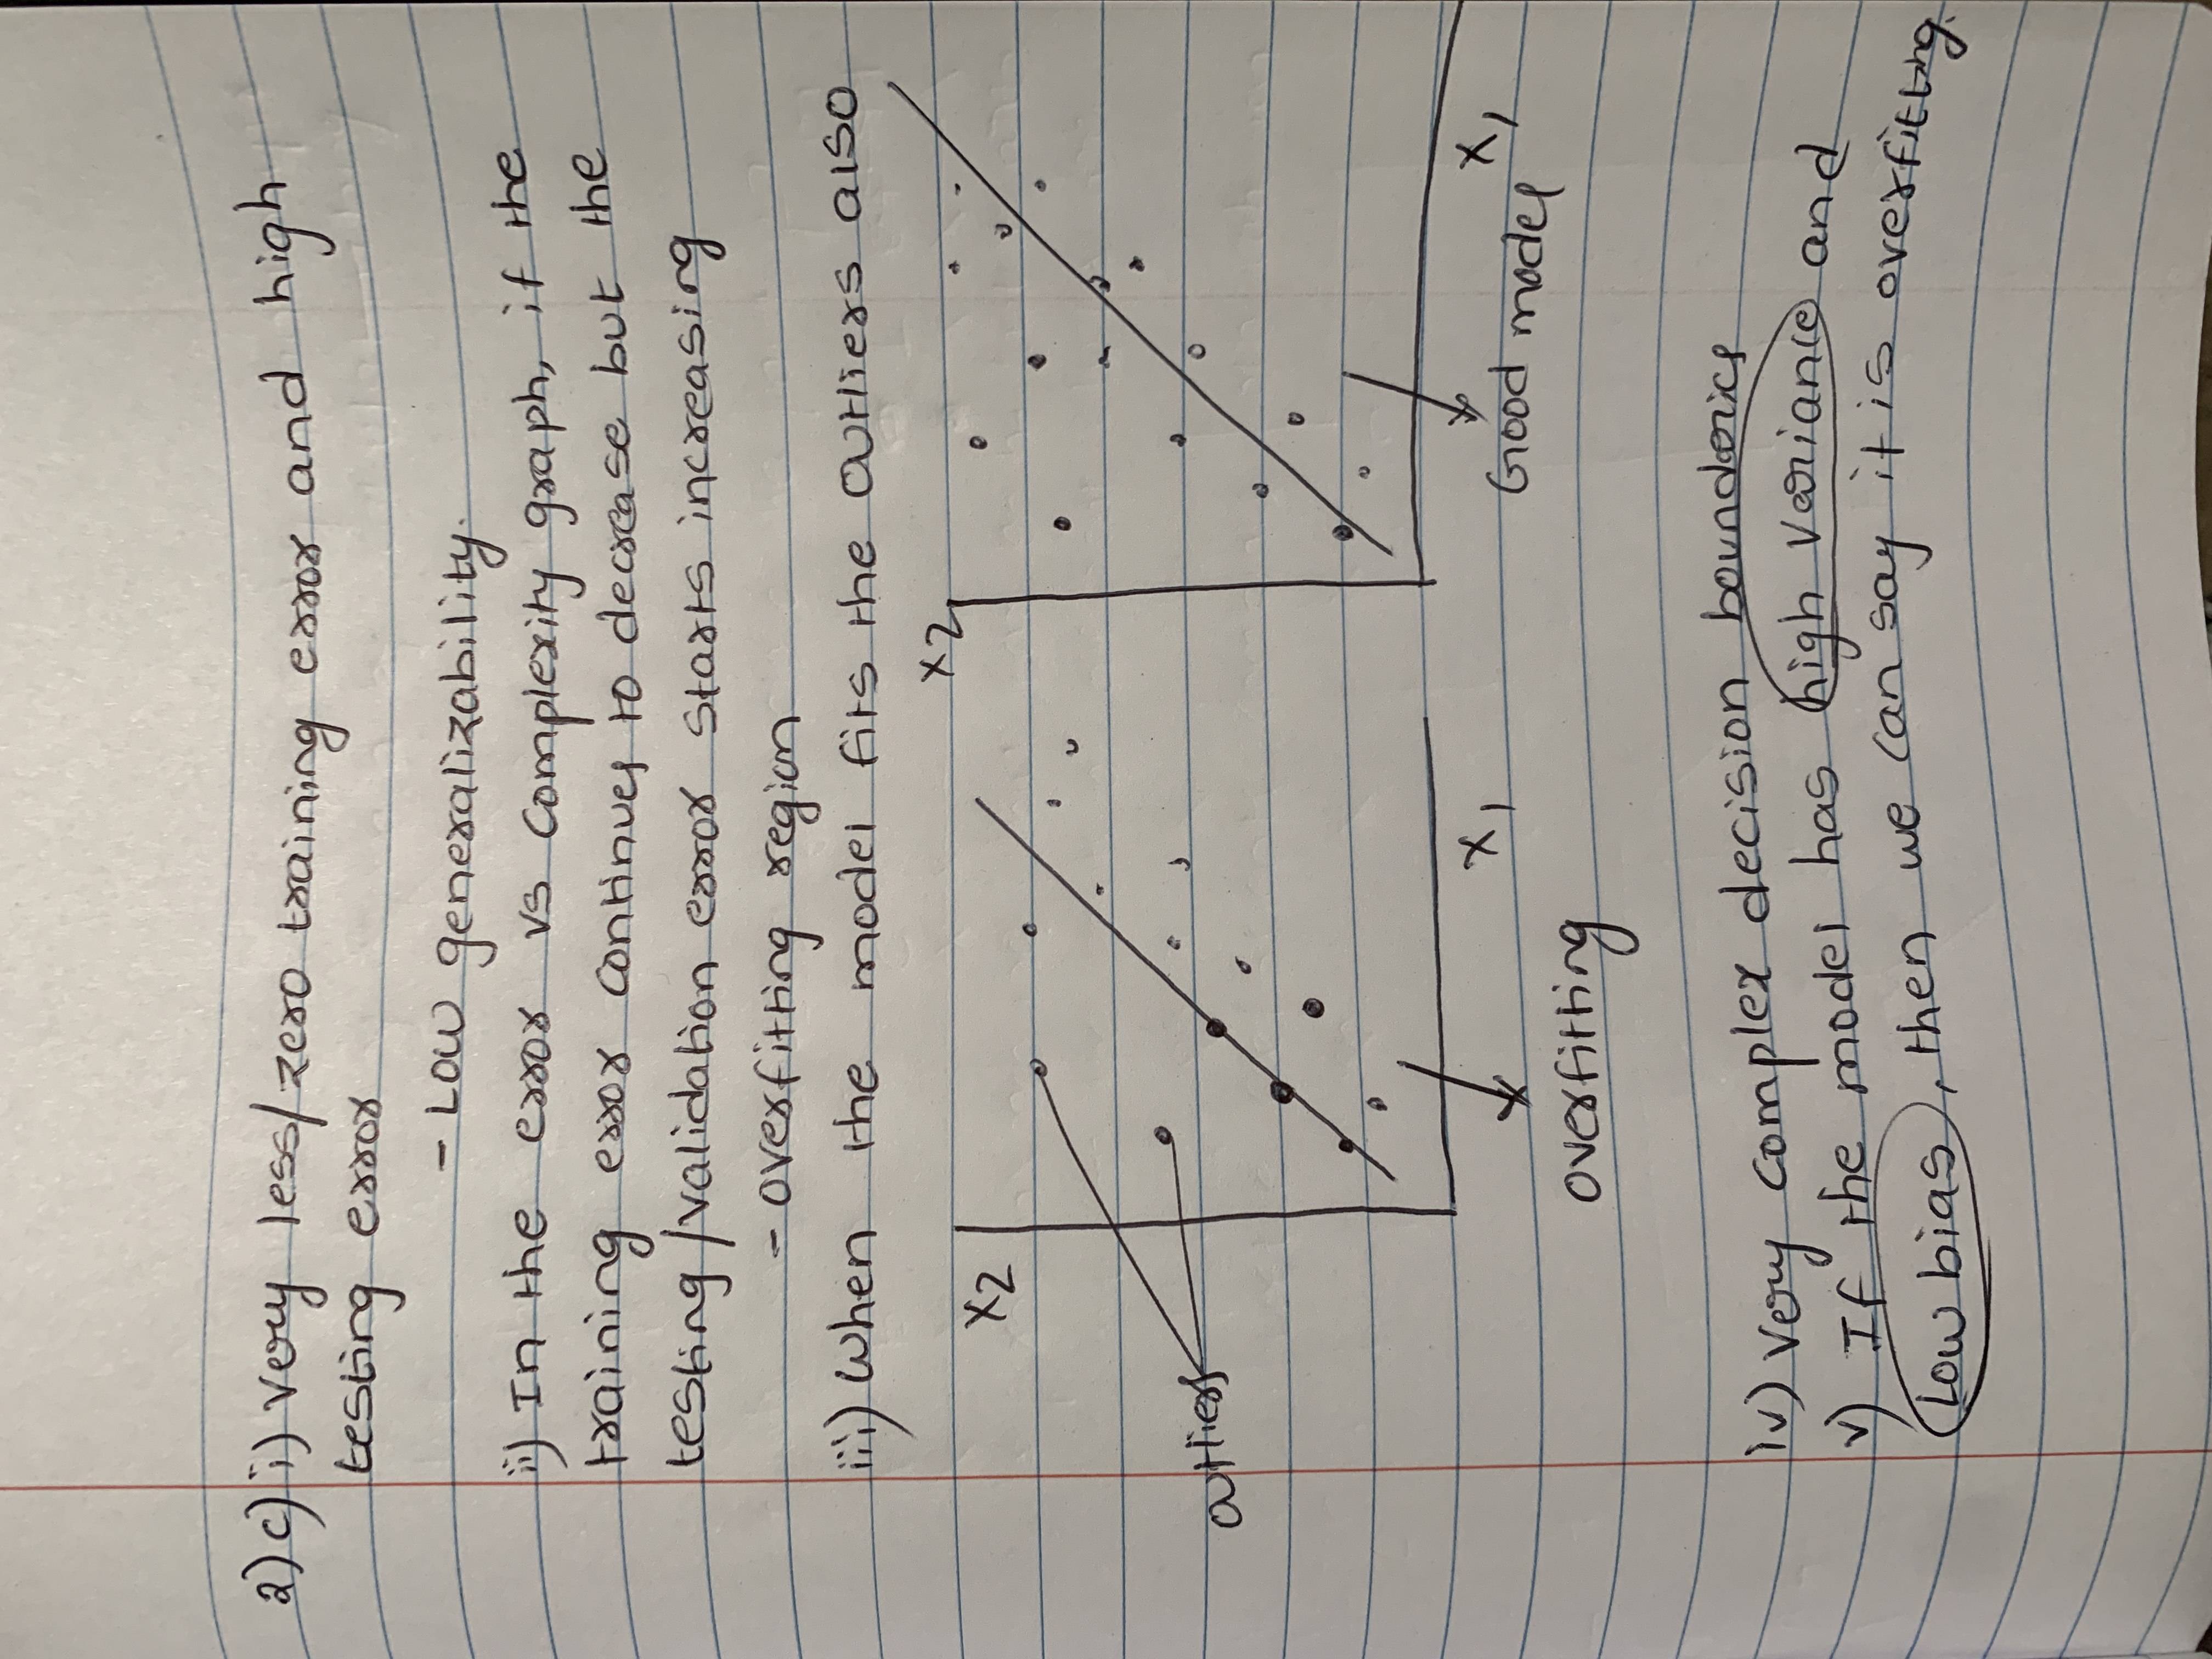 2) c) i) Very less/zero training error and high
testing error
- Low generalizability.
ii) In the error vs complexity graph, if the
training error continues to decrease but the
testing/validation error starts increasing
- overfitting region
iii) When the model fits the outliers also
X2
X2
outliers
X1
X1
overfitting
Good model
iv) Very complex decision boundaries
v) If the model has high variance and
Low bias, then we can say it is overfitting.